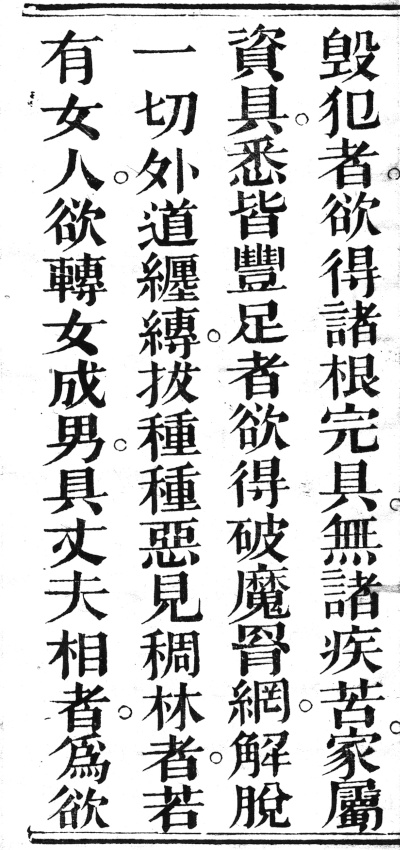 毀犯者。欲得諸根完具。無諸疾苦。家屬
資具。悉皆豐足者欲得破魔罥網。解脫
一切外道纏縛。拔種種惡見稠林者。若
有女人。欲轉女成男。具丈夫相者。爲欲